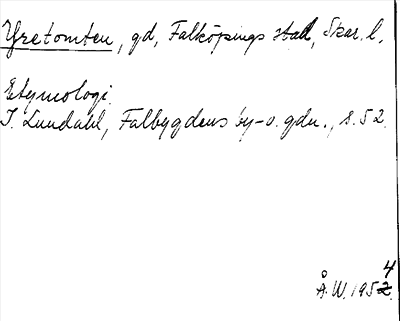 Yretomten, gd, Falköpings stad, Skar. l.
Etymologi.
I. Lundahl, Falbygdens by- o. gdn., s. 52.
Å. W. 1954.